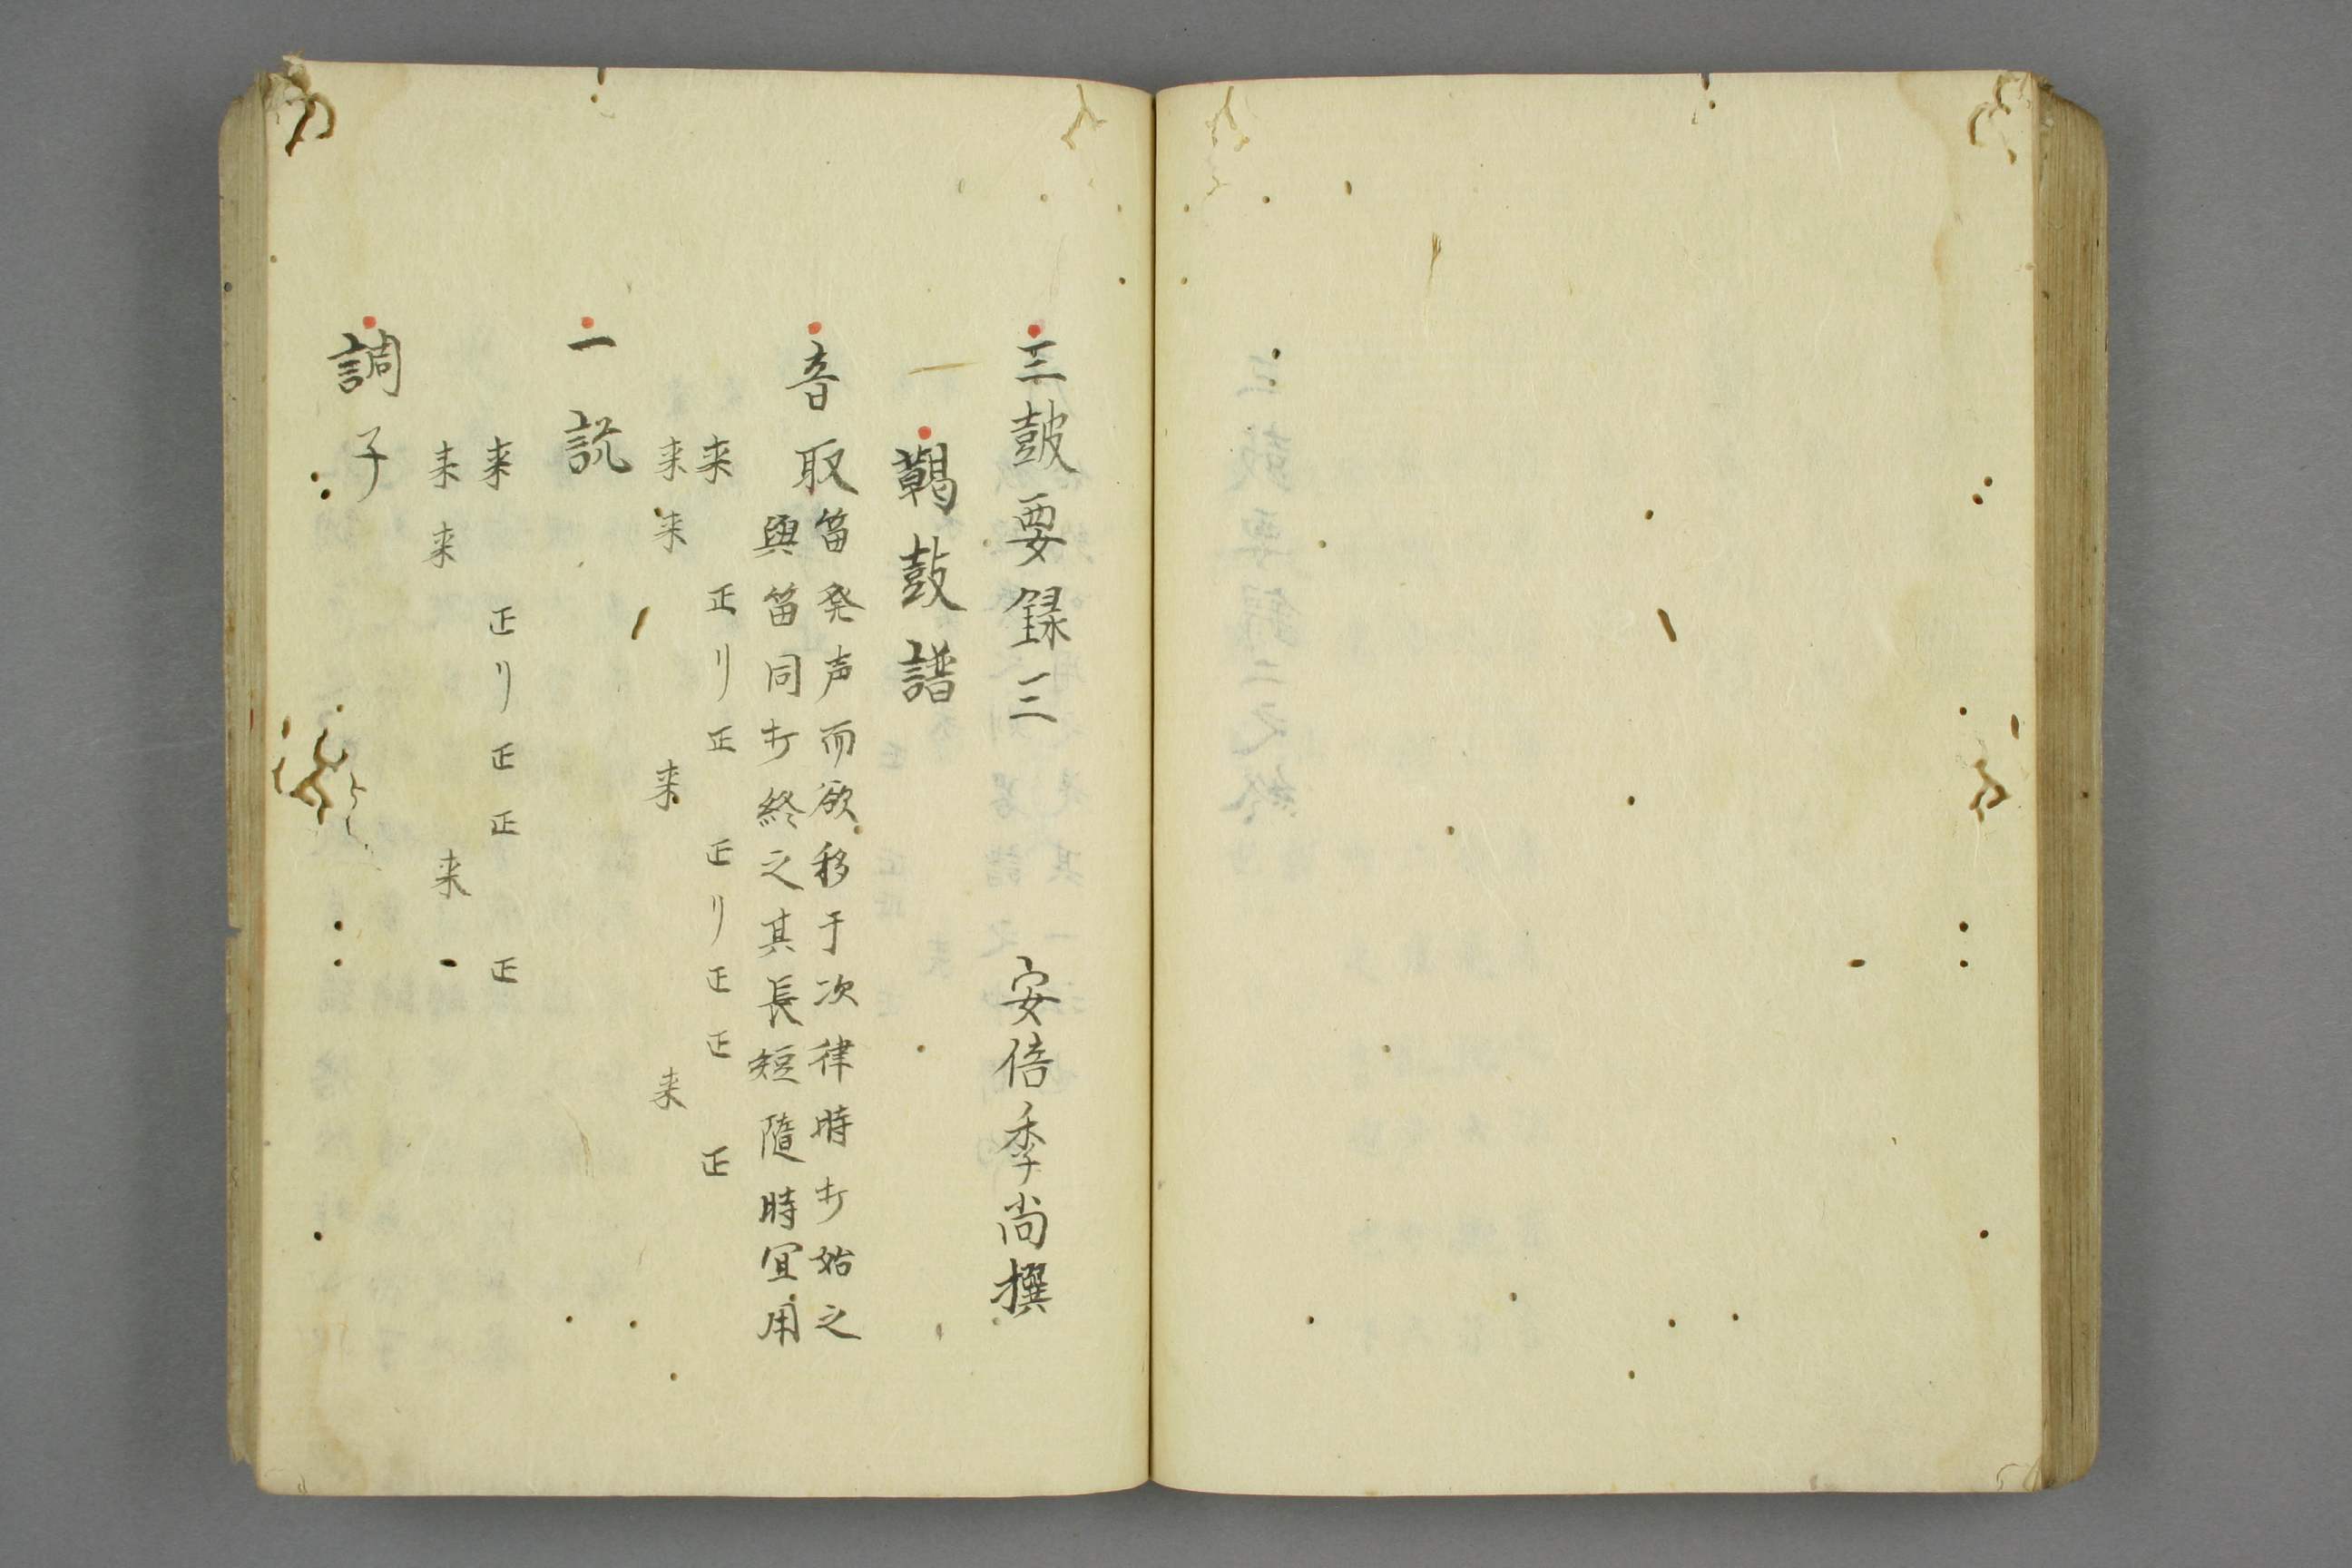 三鼓要録三　安倍季尚撰
鞨鼓譜
音取
笛発声而欲移于次律時打始之
與笛同打終之其長短隨時宜用
来　正リ正　正リ正正　正
来来　来　来
一説
来　正リ正正　正
来来　来
調子